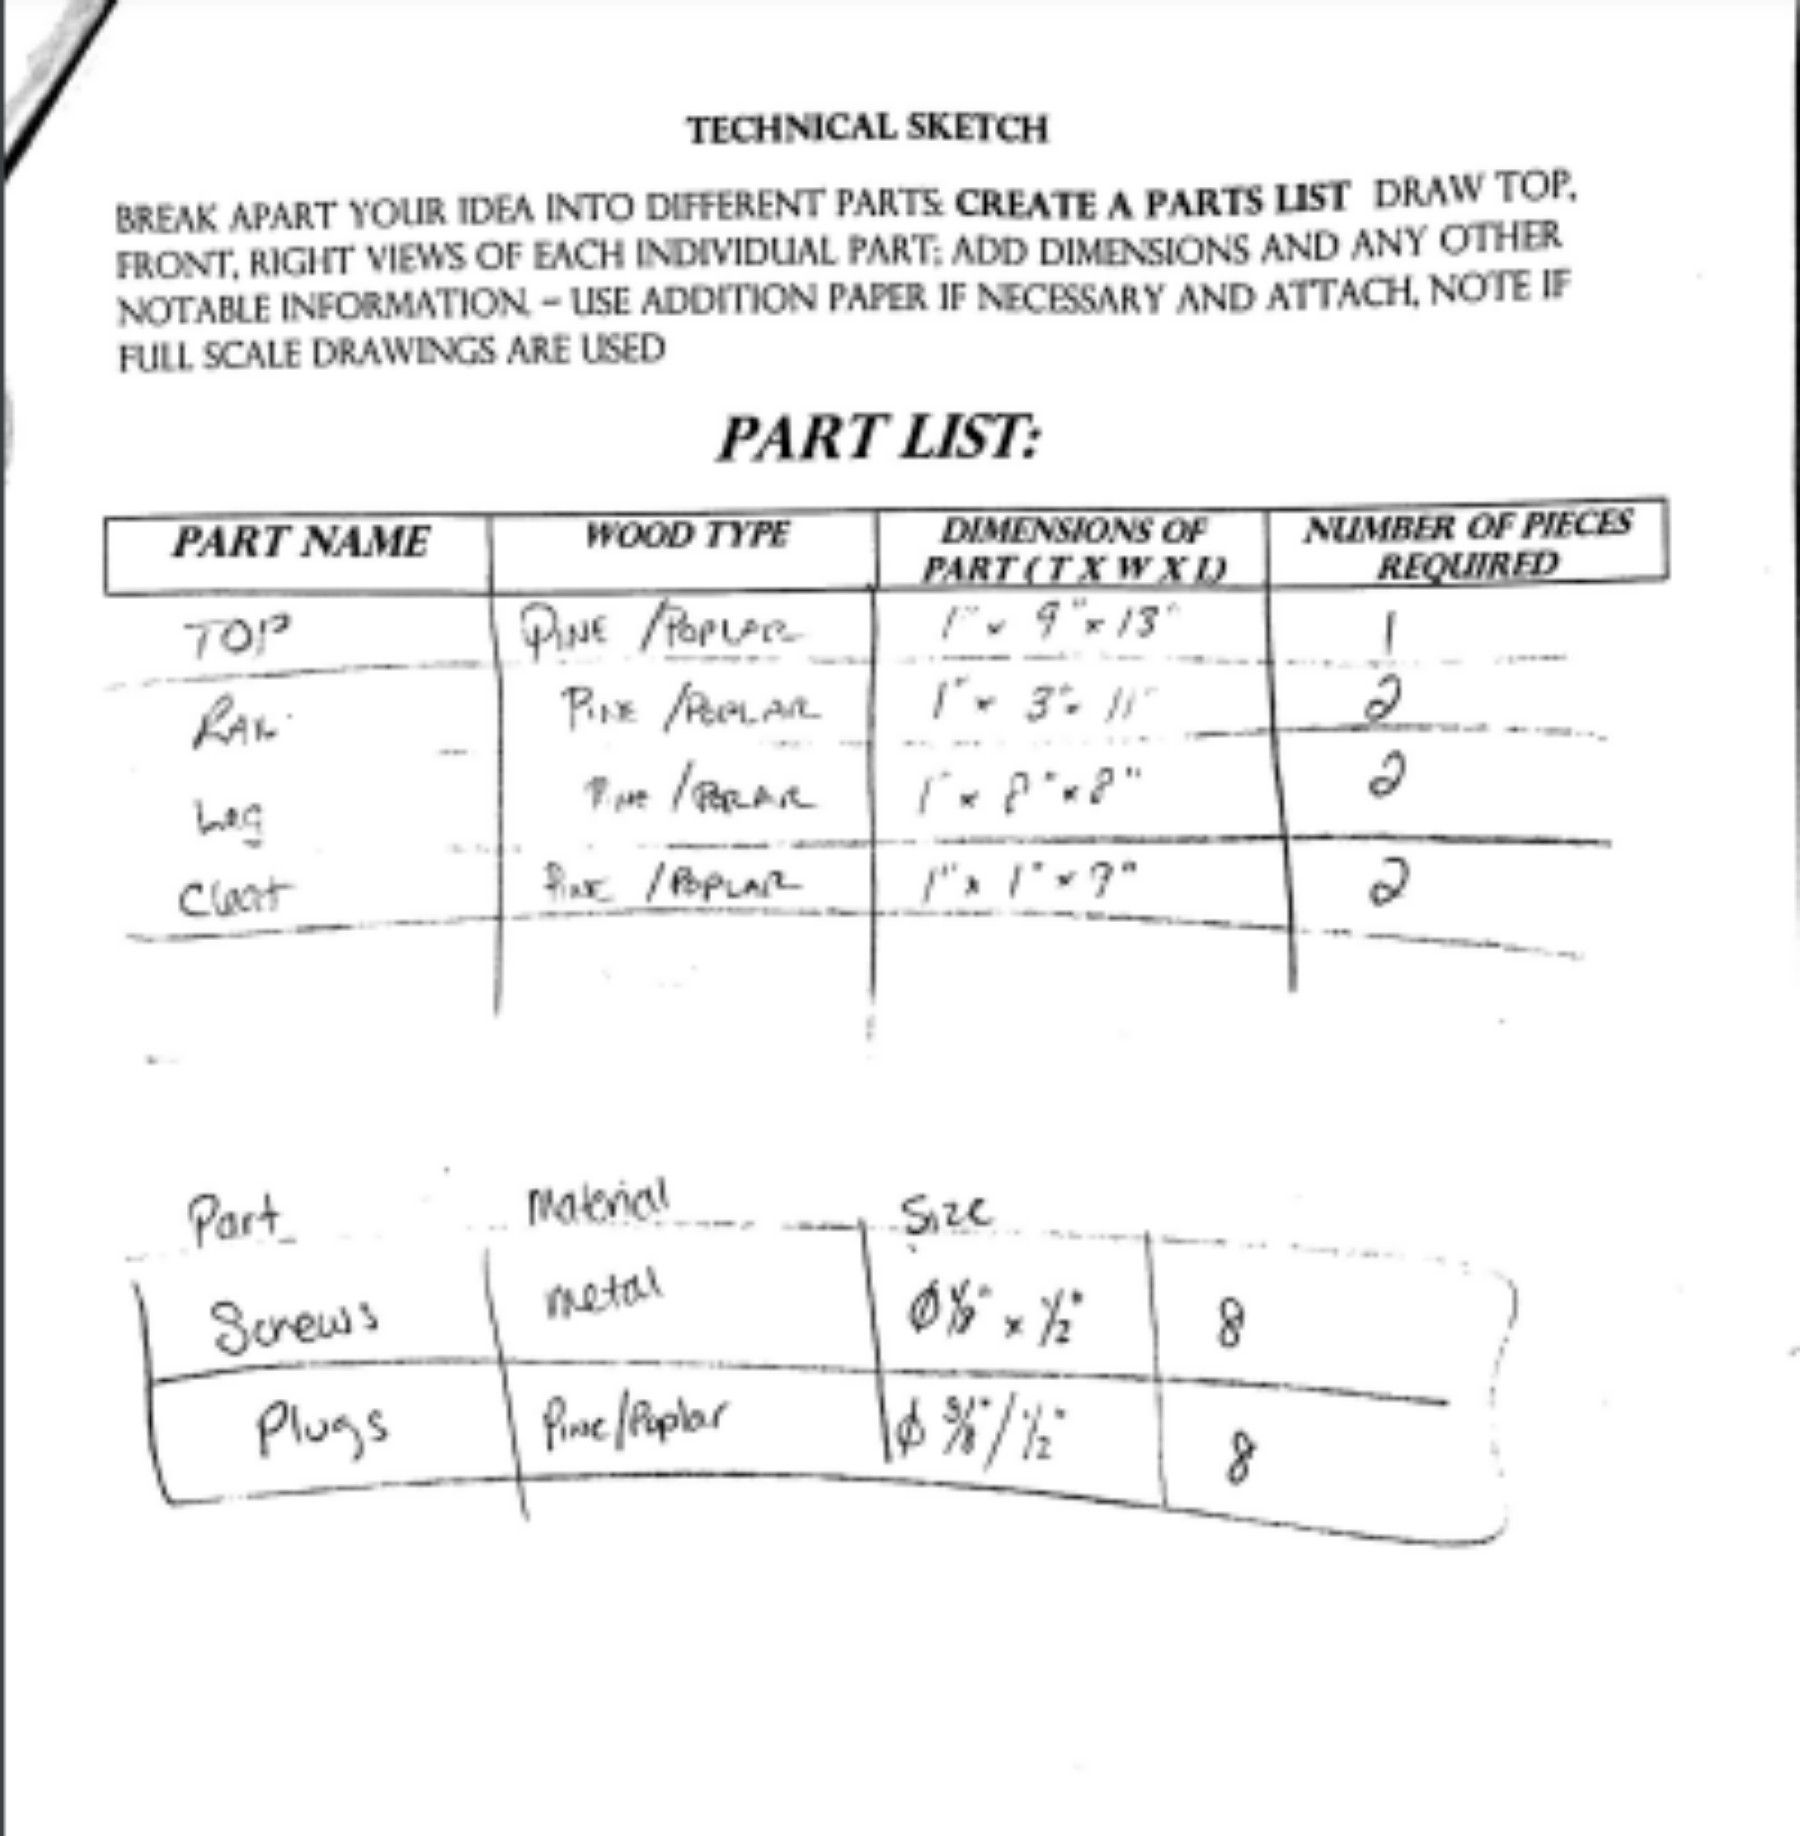 TECHNICAL SKETCH
BREAK APART YOUR IDEA INTO DIFFERENT PARTS. CREATE A PARTS LIST DRAW TOP,
FRONT, RIGHT VIEWS OF EACH INDIVIDUAL PART; ADD DIMENSIONS AND ANY OTHER
NOTABLE INFORMATION. – USE ADDITION PAPER IF NECESSARY AND ATTACH, NOTE IF
FULL SCALE DRAWINGS ARE USED
PART LIST:
PART NAME WOOD TYPE DIMENSIONS OF PART ( T X W X L) NUMBER OF PIECES REQUIRED
TOP PINE /POPLAR 1" x 9" x 13" 1
RAIL PINE /POPLAR 1" x 3" x 11" 2
Leg PINE /POPLAR 1" x 8" x 8" 2
Cleat PINE /POPLAR 1" x 1" x 7" 2
Part Material Size
Screws metal Ø 1/8" x 1/2" 8
Plugs Pine/Poplar Ø 3/8"/ 1/2" 8